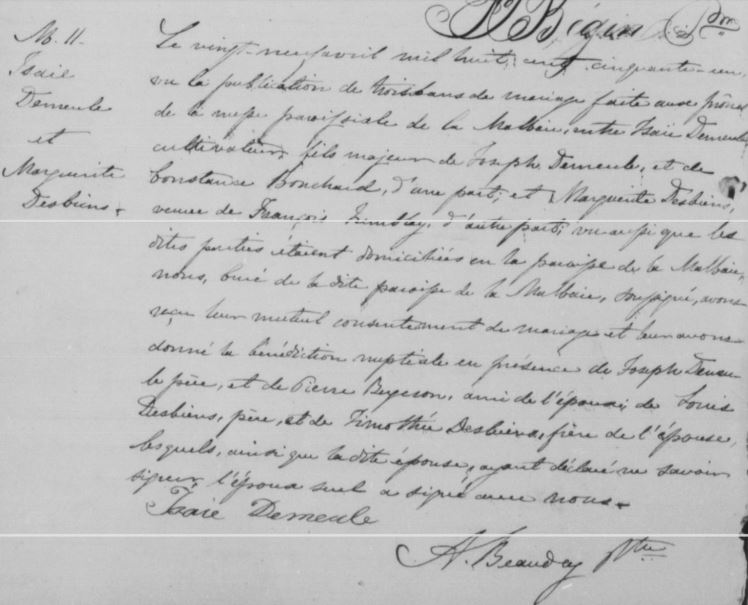 Bégin Ptre
M. 11.
Isaïe
Demeule
et
Marguerite
Desbiens.
Le vingt-neuf avril mil huit cent cinquante-un,
vu la publication de trois bans de mariage faite aux prônes
de la messe paroissiale de la Malbaie, entre Isaïe Demeule
cultivateur, fils majeur de Joseph Demeule, et de
Constance Bouchard, d'une part; et Marguerite Desbiens,
veuve de François Tremblay, d'autre part; vu aussi que les
dites parties étaient domiciliées en la paroisse de la Malbaie,
nous, curé de la dite paroisse de la Malbaie, soussigné, avons
reçu leur mutuel consentement de mariage et leur avons
donné la bénédiction nuptiale en présence de Joseph Demeu-
le père, et de Pierre Bergeron, ami de l'époux; de Louis
Desbiens, père, et de Timothée Desbiens, frère de l'épouse,
lesquels, ainsi que la dite épouse, ayant déclaré ne savoir
signer, l'époux seul a signé avec nous.
Isaïe Demeule
A. Beaudry Ptre